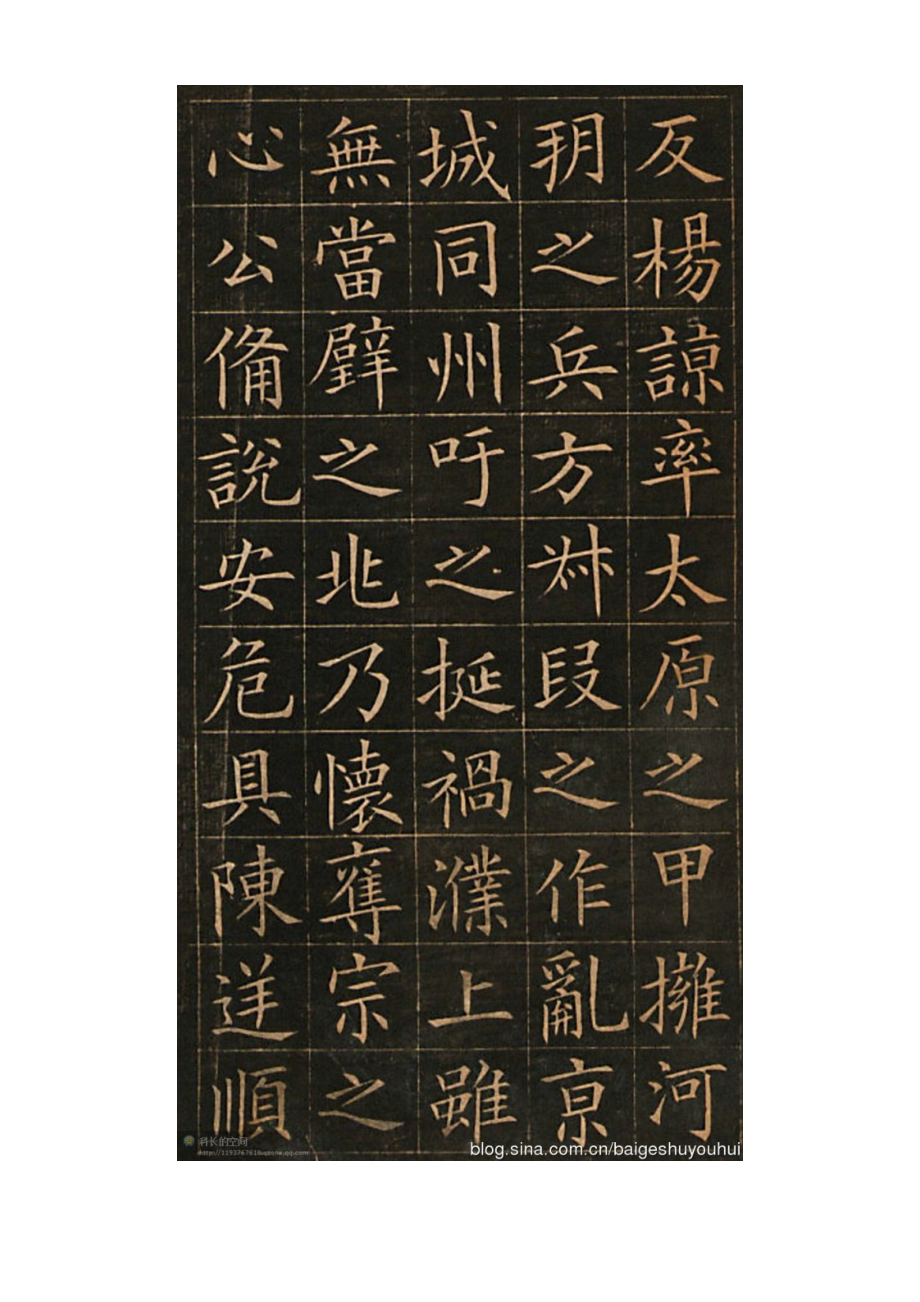 反楊諒率太原之甲擁河
朔之兵方叔段之作亂京
城同州吁之挻禍濮上雖
無當璧之北乃懷奪宗之
心公備說安危具陳逆順
科长的空间
blog.sina.com.cn/baigeshuyouhui